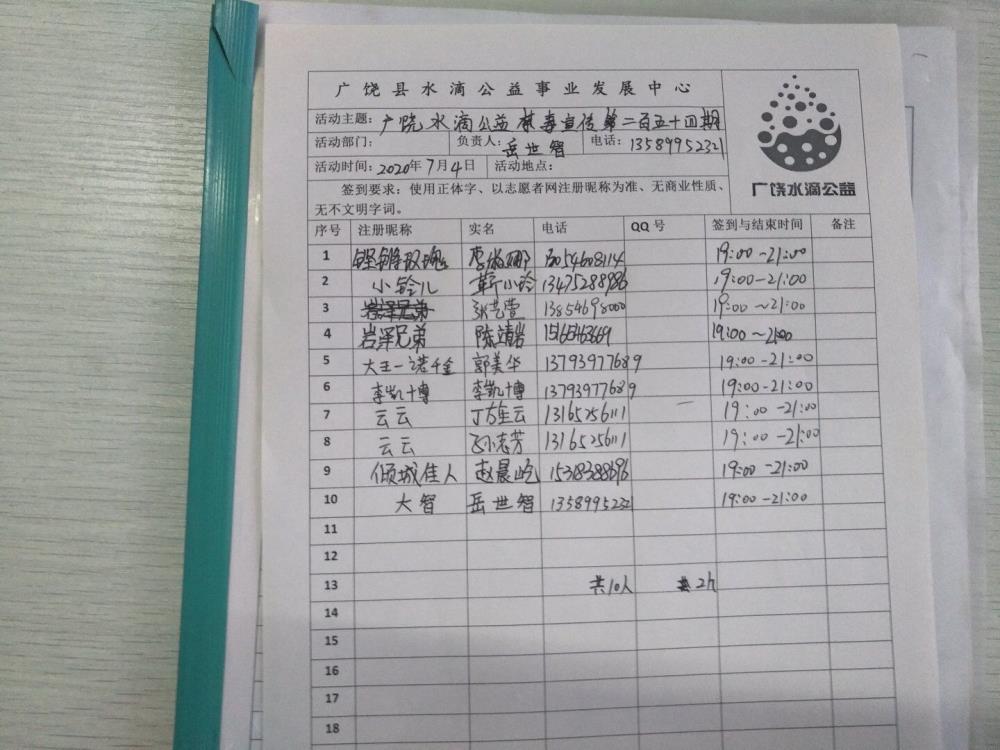 广饶县水滴公益事业发展中心
活动主题：广饶水滴公益禁毒宣传第二百五十四期
活动部门： 负责人：岳世智 电话：13589952321
活动时间：2020年7月4日 活动地点：
签到要求：使用正体字、以志愿者网注册昵称为准、无商业性质、
无不文明字词。
广饶水滴公益
序号 注册昵称 实名 电话 QQ号 签到与结束时间 备注
1 铿锵玫瑰 15054608114 19:00-21:00
2 小铃儿 靳小玲 13475288986 19:00-21:00
3 岩泽兄弟 张艺萱 13854698000 19:00~21:00
4 岩泽兄弟 陈靖岩 15165463669 19:00~21:00
5 大王一诺千金 郭美华 13793977689 19:00-21:00
6 李凯博 李凯博 13793977689 19:00-21:00
7 云云 13165256111 19:00-21:00
8 云云 孙志芳 13165256111 19:00-21:00
9 倾城佳人 赵晨屹 15318388696 19:00-21:00
10 大智 岳世智 13589952321 19:00-21:00
11
12
13 共10人 共2h
14
15
16
17
18